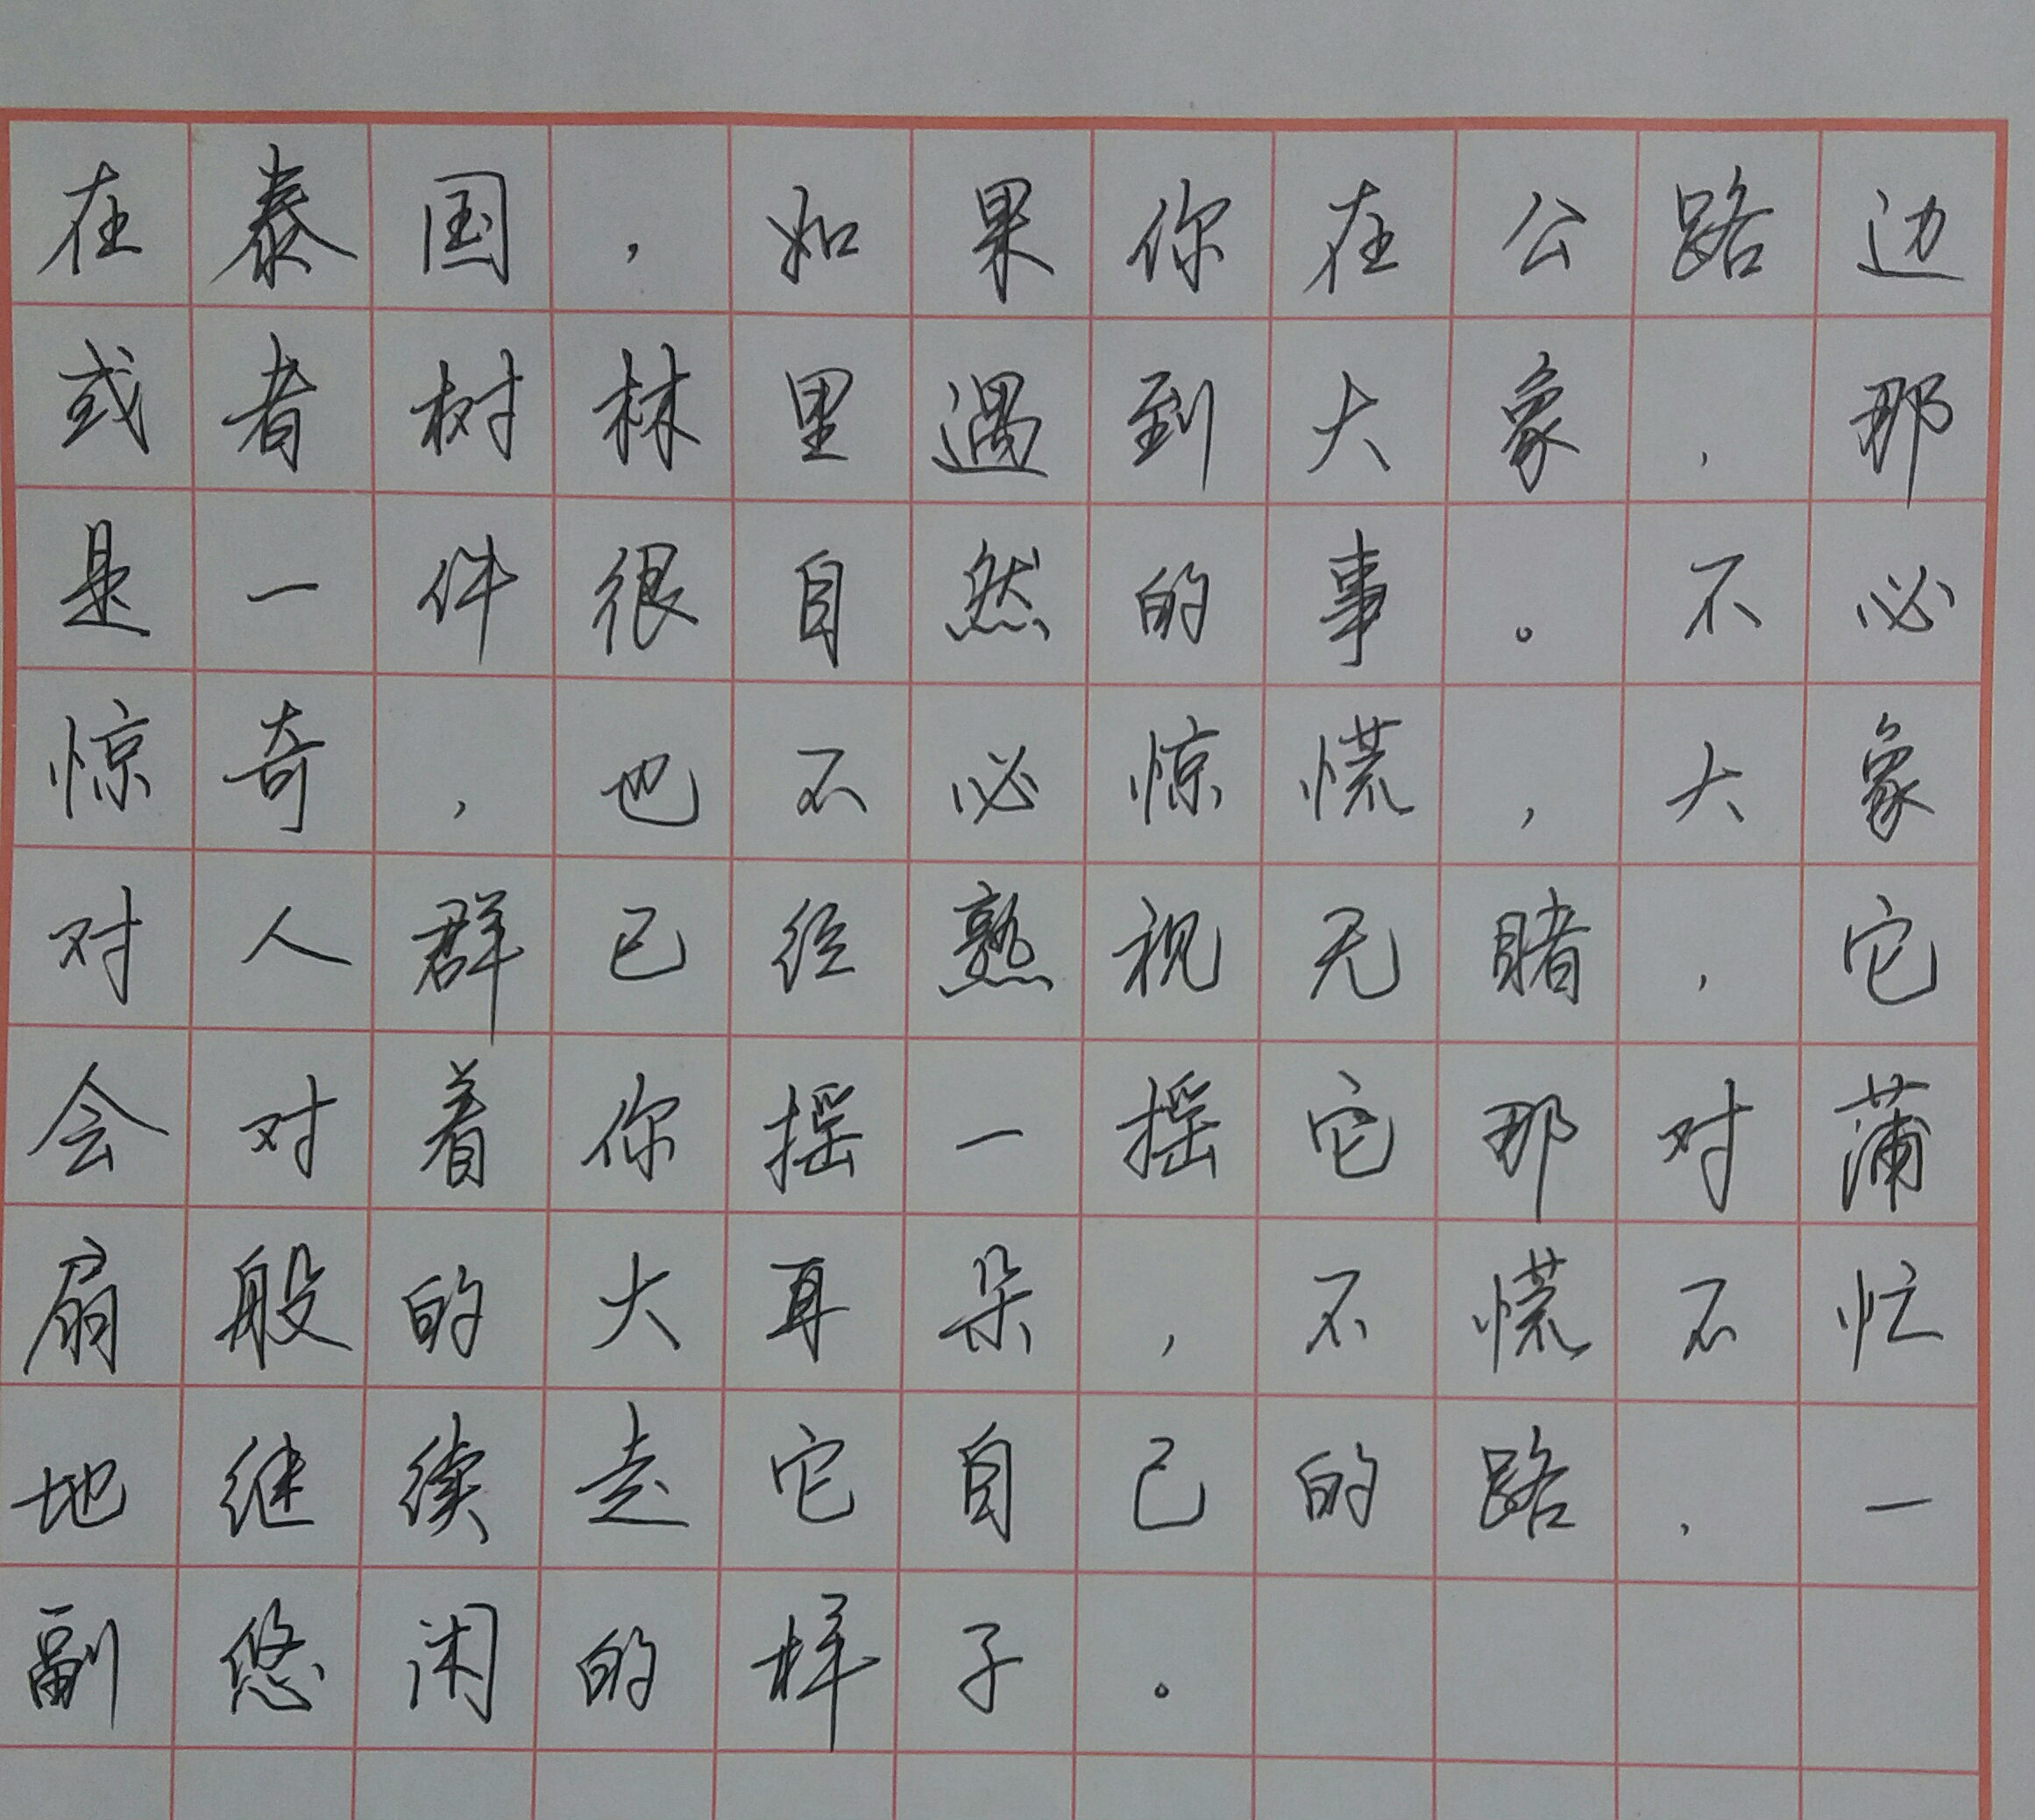 在泰国，如果你在公路边
或者树林里遇到大象，那
是一件很自然的事。不必
惊奇，也不必惊慌，大象
对人群已经熟视无睹，它
会对着你摇一摇它那对蒲
扇般的大耳朵，不慌不忙
地继续走它自己的路，一
副悠闲的样子。